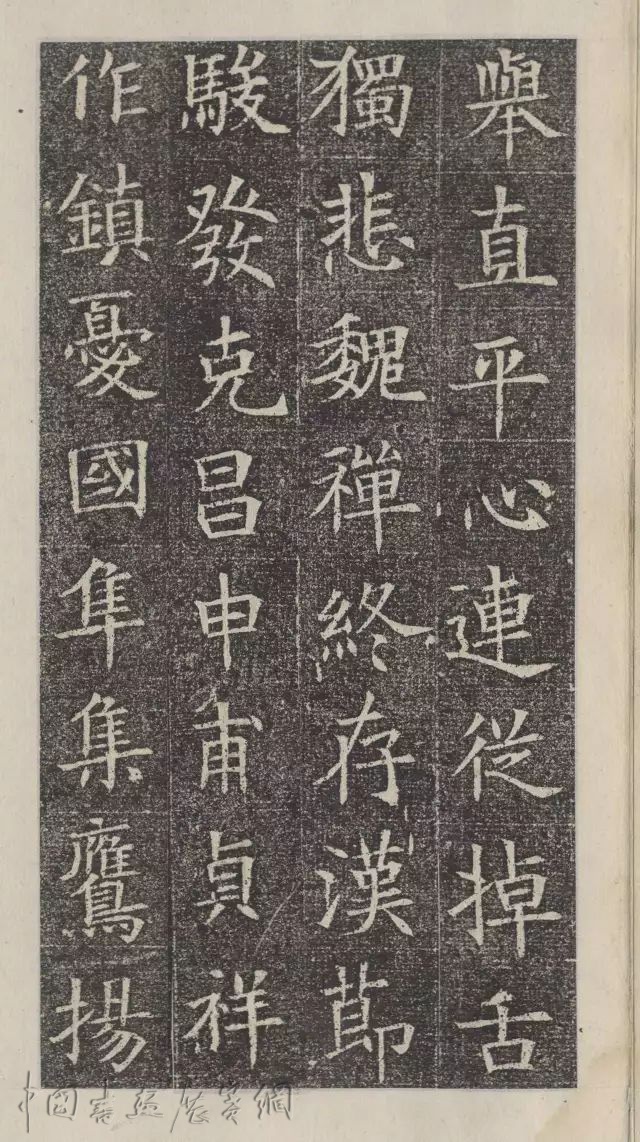 舉直平心連從掉舌
獨悲魏禪終存漢節
駿發克昌申甫貞祥
作鎮憂國隼集鷹揚
中国书法展赛網